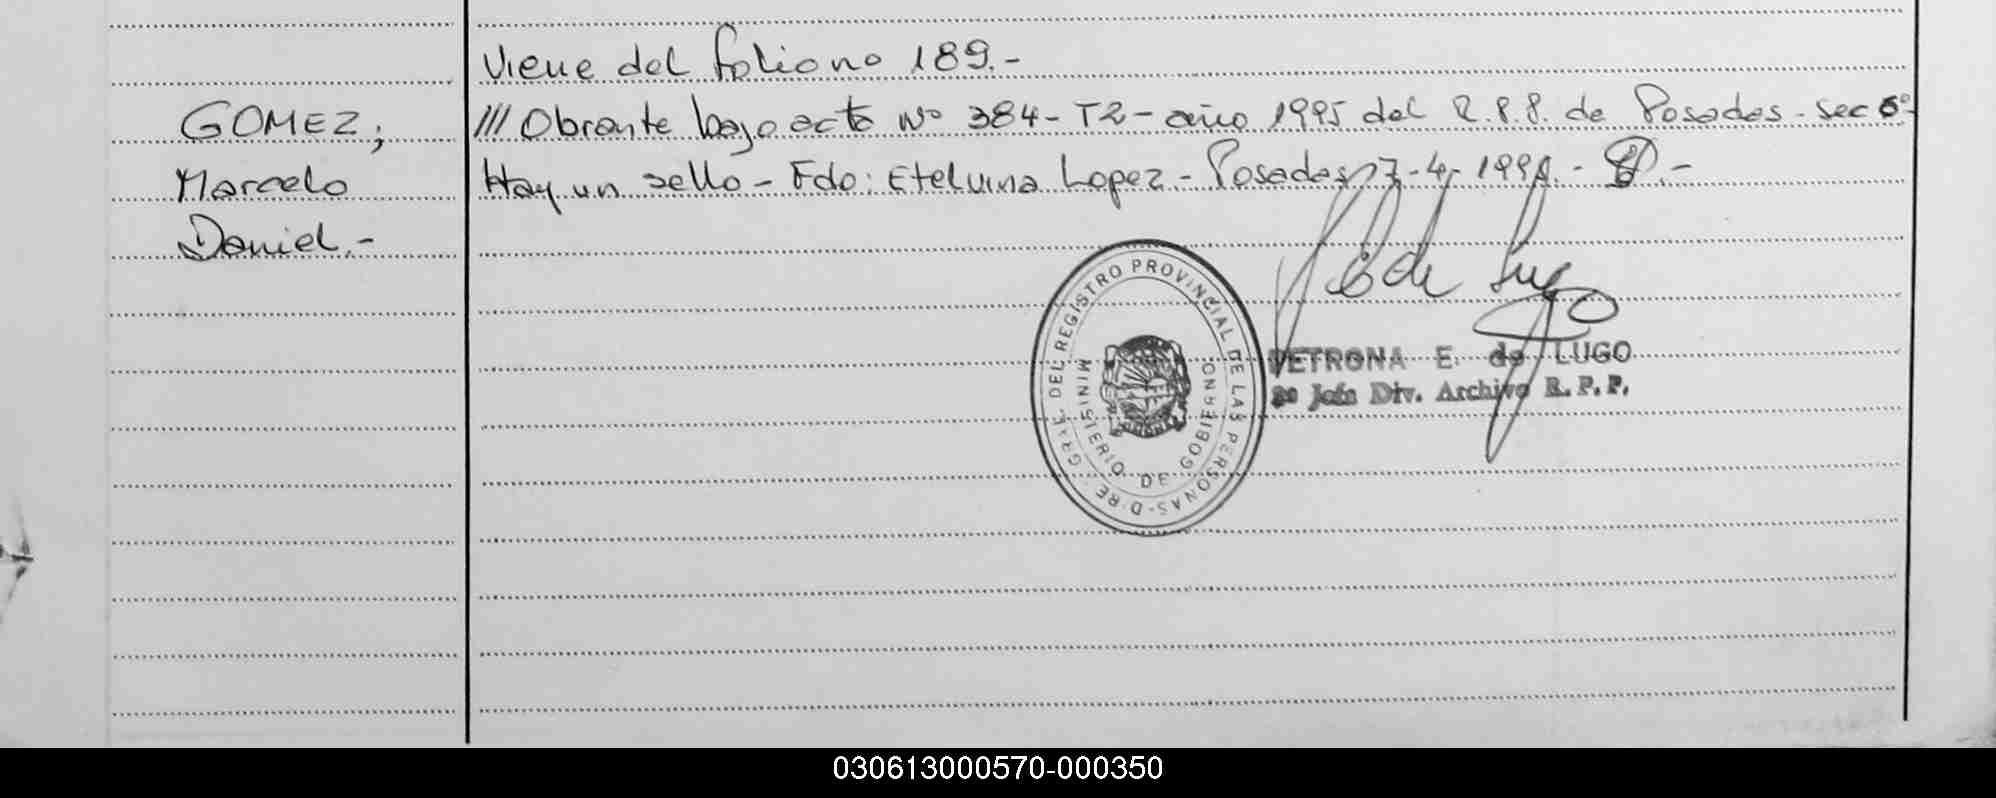 Viene del folio no 189.-
GOMEZ;
Marcelo
Daniel.-
/// Obrante bajo acta Nº 384-T2-año 1995 del R.P.P. de Posadas-Sec 6º-
Hay un sello - Fdo: Etelvina Lopez - Posadas, 7-4-
P. E. de Lugo
DIRE. GRAL. DEL REGISTRO PROVINCIAL DE LAS PERSONAS
MINISTERIO DE GOBIERNO
PETRONA E. de LUGO
Jefa Div. Archivo R. P. P.
030613000570-000350